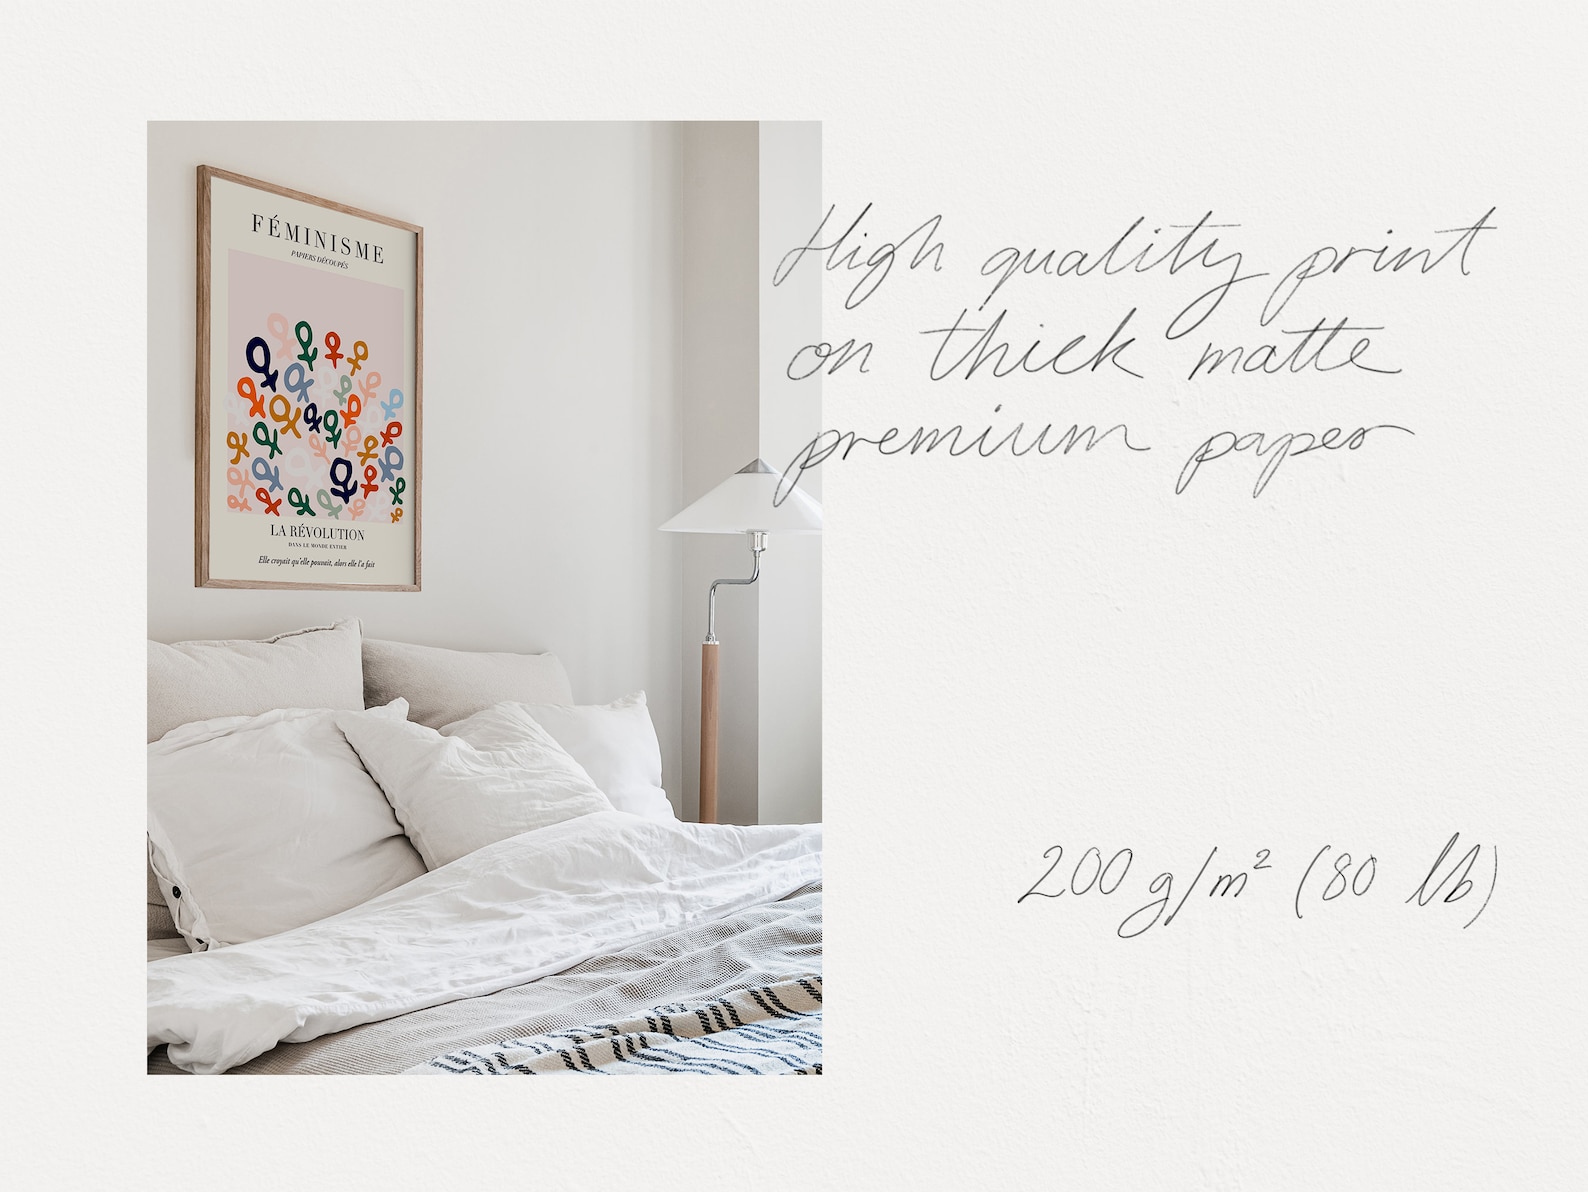 FÉMINISME
PAPIERS DÉCOUPÉS
LA RÉVOLUTION
DANS LE MONDE ENTIER
Elle croyait qu'elle pouvait, alors elle l'a fait
High quality print
on thick matte
premium paper
200 g/m² (80 lb)